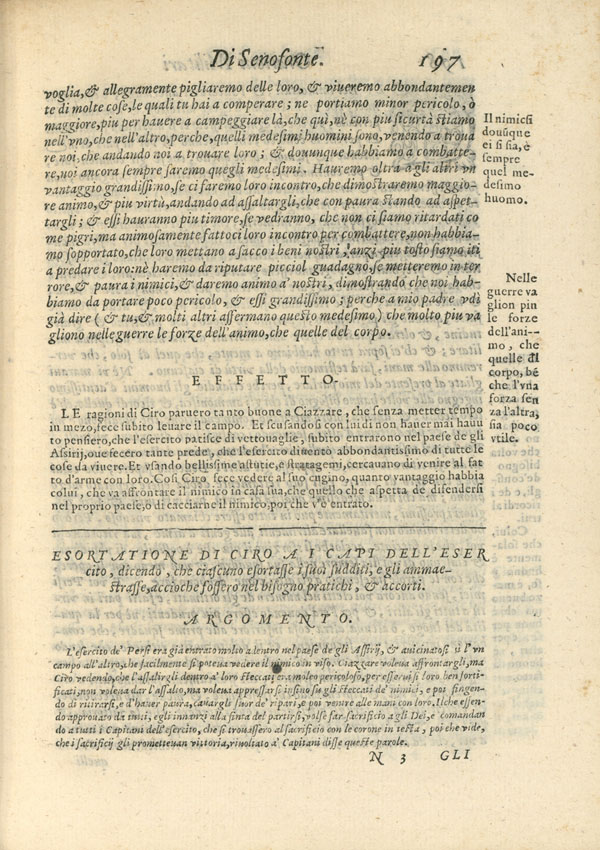 Di Senofonte. 197
voglia,& allegramente pigliaremo delle loro, & viueremo abbondantemen
te di molte cose,le quali tu hai a comperare ; ne portiamo minor pericolo, ò
maggiore,piu per hauere a campeggiare là, che qui, nè con piu sicurtà stiamo
nell'vno,che nell'altro,perche, quelli medesimi huomini sono, venendo a troua
re noi,che andando noi a trouare loro ; & douunque habbiamo a combatte-
re,noi ancora sempre saremo quegli medesimi. Hauremo oltra a gli altri vn
vantaggio grandissimo,se ci faremo loro incontro,che dimostraremo maggio-
re animo,& piu virtù,andando ad assaltargli,che con paura stando ad aspet-
targli ; & essi hauranno piu timore,se vedranno, che non ci siamo ritardati co
me pigri,ma animosamente fattoci loro incontro per combattere,non habbia-
mo sopportato,che loro mettano a sacco i beni nostri ; anzi piu tosto siamo iti
a predare i loro:nè haremo da riputare picciol guadagno,se metteremo in ter
rore,& paura i nimici,& daremo animo a' nostri, dimostrando che noi hab-
biamo da portare poco pericolo, & essi grandissimo ; perche a mio padre vdi
già dire ( & tu,& molti altri affermano questo medesimo) che molto piu va
gliono nelle guerre le forze dell'animo,che quelle del corpo.
Il nimicsi
douũque
ei si sia, è
sempre
quel me-
desimo
huomo.
Nelle
guerre va
glion piu
le forze
dell'ani-
mo, che
quelle del
corpo, bẽ
che l'vna
forza sen
za l'altra,
sia poco
vtile.
EFFETTO.
LE ragioni di Ciro paruero tanto buone a Ciazzare, che senza metter tempo
in mezo,fece subito leuare il campo. Et scusandosi con lui di non hauer mai hauu
to pensiero,che l'esercito patisce di vettouaglie, subito entrarono nel paese de gli
Assirij,oue fecero tante prede, che l'esercito diuento abbondantissimo di tutte le
cose da viuere. Et vsando bellissime astutie,e stratagemi,cercauano di venire al fat
to d'arme con loro. Cosi Ciro fece vedere al suo cugino, quanto vantaggio habbia
colui, che va affrontare il nimico in casa sua,che quello che aspetta de difendersi
nel proprio paese,o di cacciarne il nimico, poi che v'è entrato.
ESORTATIONE DI CIRO A I CAPI DELL'ESER
cito, dicendo, che ciascuno esortasse i suoi sudditi, e gli ammae-
strasse,accioche fossero nel bisogno pratichi, & accorti.
ARGOMENTO.
L'esercito de' Persi era già entrato molto a dentro nel paese de gli Assirij, & auicinatosi sì l'vn
campo all'altro,che facilmente si poteua vedere il nimico in viso. Ciazzare voleua affrontargli,ma
Ciro vedendo,che l'assalirgli dentro a' loro steccati era molto pericoloso, per esserui si loro ben forti-
ficati,non voleua dar l'assalto,ma voleua appressarsi insino su gli steccati de' nimici, e poi fingen-
do di ritirarsi, e d'hauer paura,cauargli fuor de' ripari,e poi venire alle mani con loro. Ilche essen-
do approuato da tutti, egli innanzi alla finta del partirsi, volse far sacrificio a gli Dei,e comandan
do a tutti i Capitani dell'esercito,che si trouassero al sacrificio con le corone in testa, poi che vide,
che i sacrificij gli prometteuan vittoria,riuoltato a' Capitani disse queste parole.
N 3 GLI